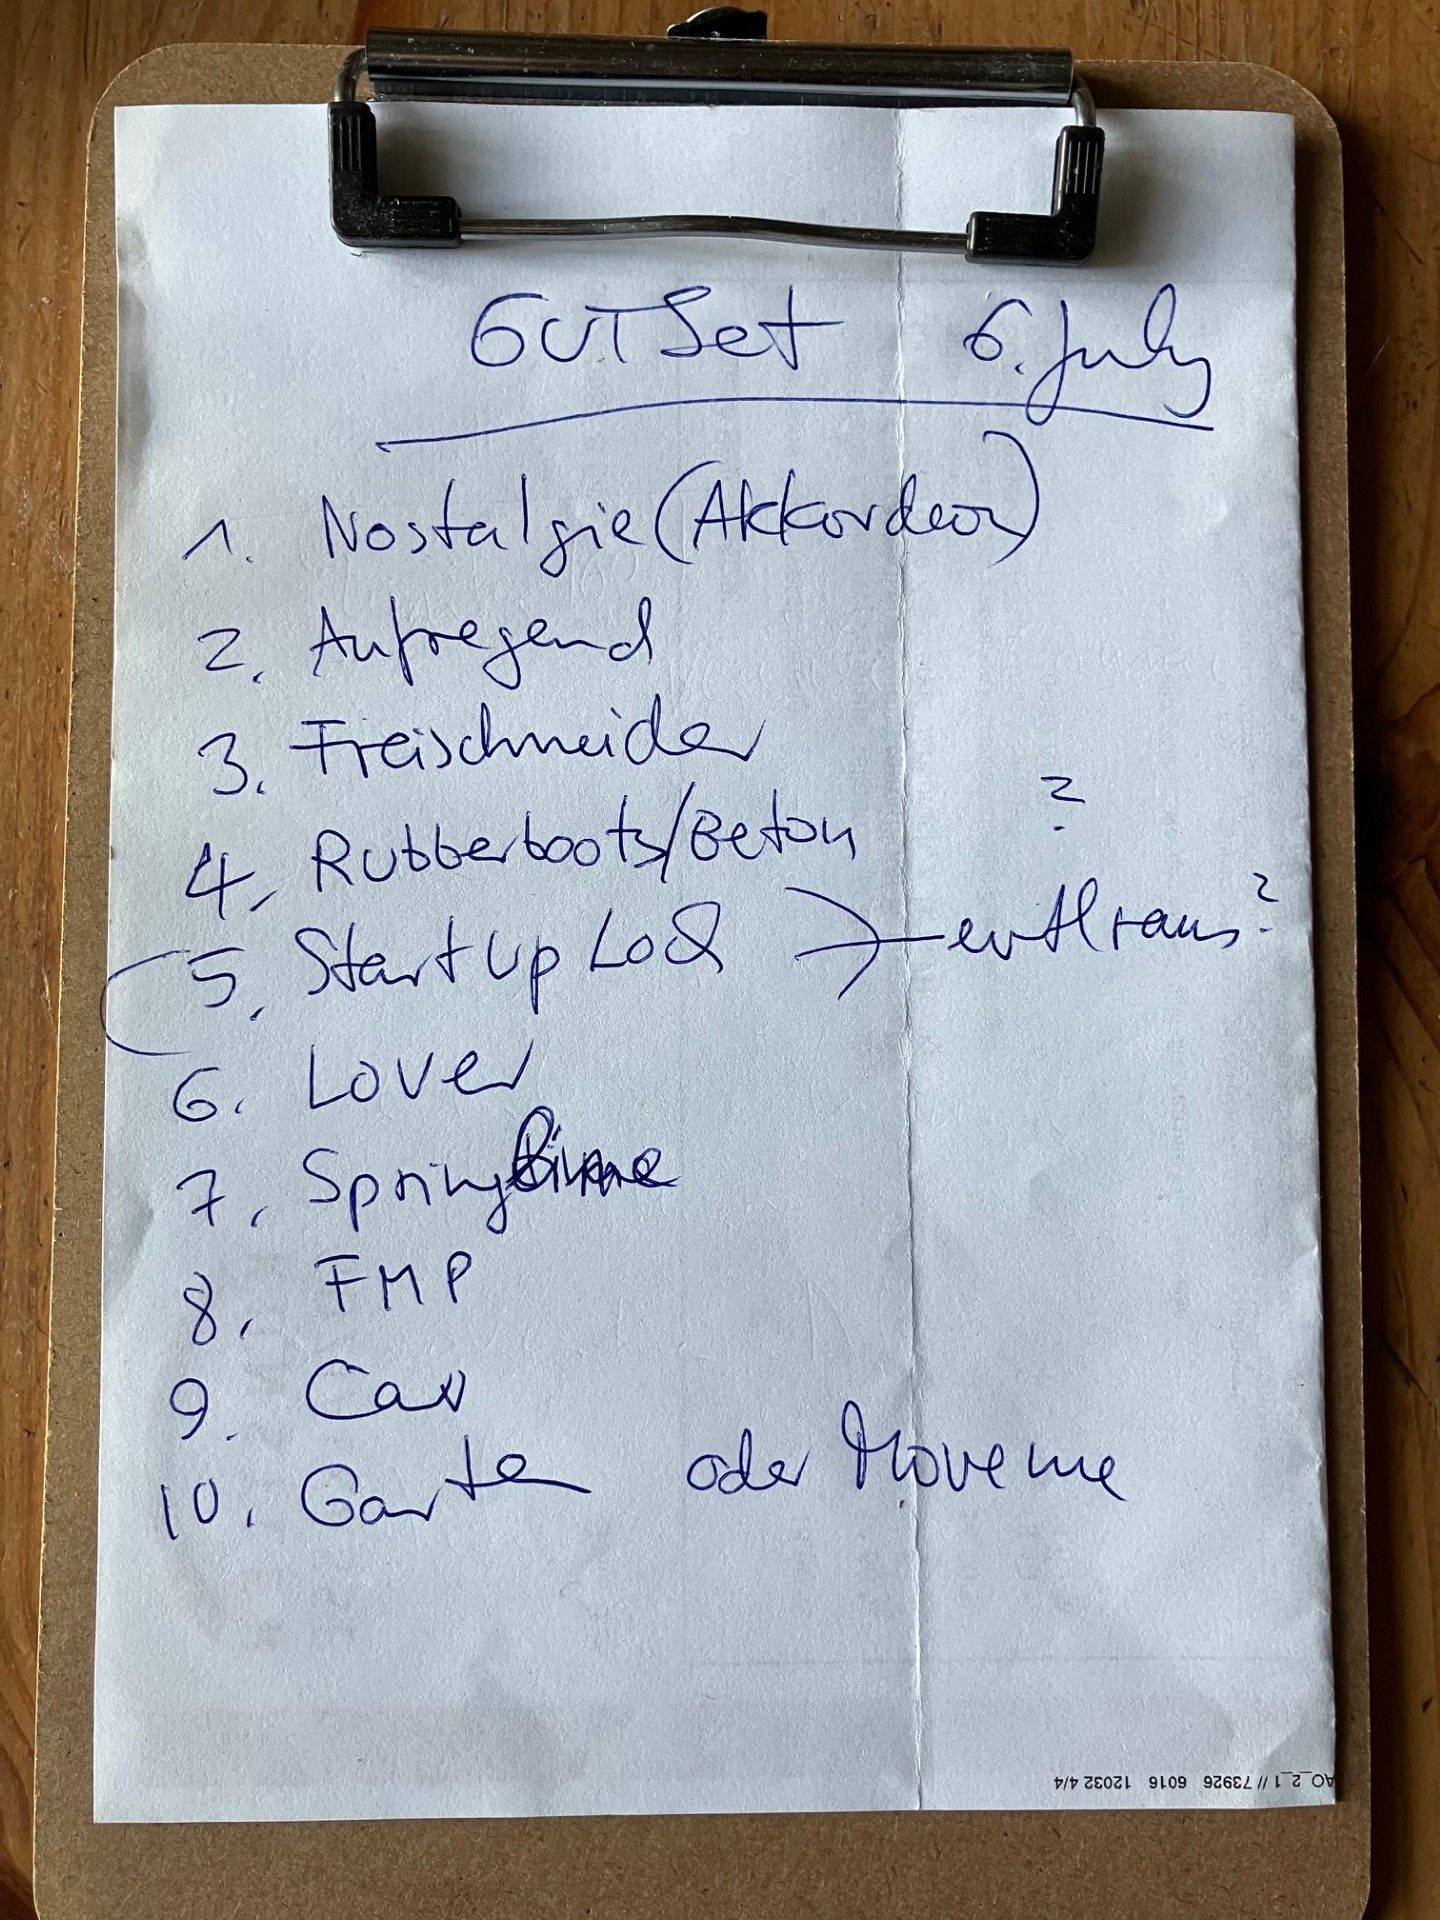 GUT Set 6. July
1. Nostalgie (Akkordeon)
2. Aufregend
3. Freischneider
4. Rubberboots/Beton ?
5. Start Up Lod evtl raus?
6. Lover
7. Springtime
8. FMP
9. Car
10. Garten oder Moveme
AO_2_1 // 73926 6016 12032 4/4